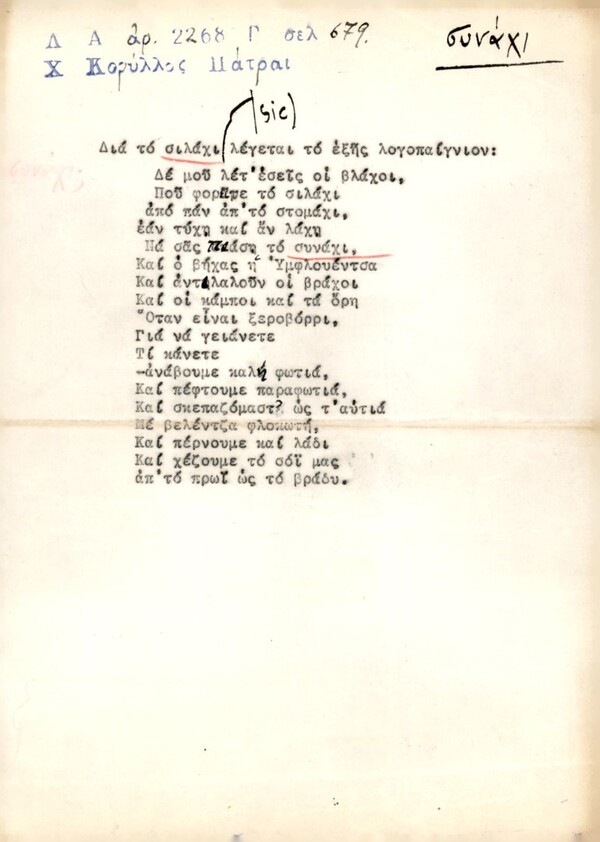 Λ Α ἀρ. 2268 Γ σελ 679.
συνάχι
Χ Κορύλλος Πάτραι
(sic)
Διά τό σιλάχι λέγεται τό ἑξῆς λογοπαίγνιον:
Δέ μοῦ λέτ'ἐσεῖς οἱ βλάχοι,
Ποῦ φορᾶτε τό σιλάχι
ἀπό πάν ἀπ'τό στομάχι,
ἐάν τύχῃ καί ἄν λάχῃ
Νά σᾶς πιάσῃ τό συνάχι,
Καί ὁ βήχας ἡ Ὑμφλουέντσα
Καί ἀντιλαλοῦν οἱ βράχοι
Καί οἱ κάμποι καί τά ὄρη
Ὅταν εἶναι ξεροβόρρι,
Γιά νά γειάνετε
Τί κάνετε
-ἀνάβουμε καλή φωτιά,
Καί πέφτουμε παραφωτιά,
Καί σκεπαζόμαστ? ὡς τ'αὐτιά
Μέ βελέντζα φλοκωτή,
Καί πέρνουμε καί λάδι
Καί χέζουμε τό σόϊ μας
ἀπ'τό πρωΐ ὡς τό βράδυ.